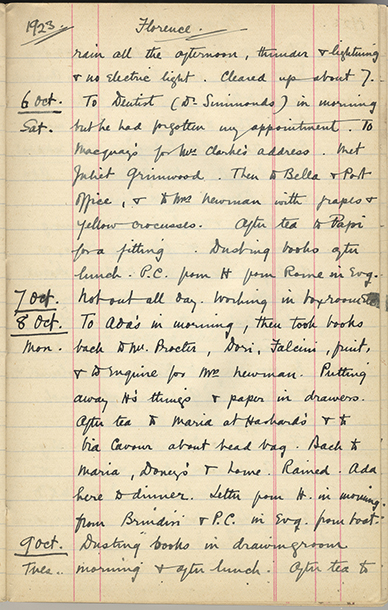 1923. Florence.
rain all the afternoon, thunder & lightning
& no Electric light. Cleared up about 7.
6 Oct. To Dentist (Dr. Simmonds) in morning
Sat. but he had forgotten my appointment. To
Macquay's for Mrs Clarke's address. Met
Juliet Grimwood. Then to Bella & Post
Office, & to Mrs Newman with grapes &
yellow crocusses. After tea to Papi
for a fitting. Dusting books after
lunch. P.C. from H from Rome in Evg.
7 Oct. Not out all day. Working in boxroom etc.
8 Oct. To Ada's in morning, then took books
Mon. back to Mr. Procter, Dori, Falcini, fruit,
& to enquire for Mrs Newman. Putting
away H's things & paper in drawers.
After tea to Maria at Haskard's & to
Via Cavour about bead bag. Back to
Maria, Doney's & home. Rained. Ada
here to dinner. Letter from H. in morning
from Brindisi & P.C. in Evg. from boat.
9 Oct. Dusting books in drawingroom
Tues. morning & after lunch. After tea to